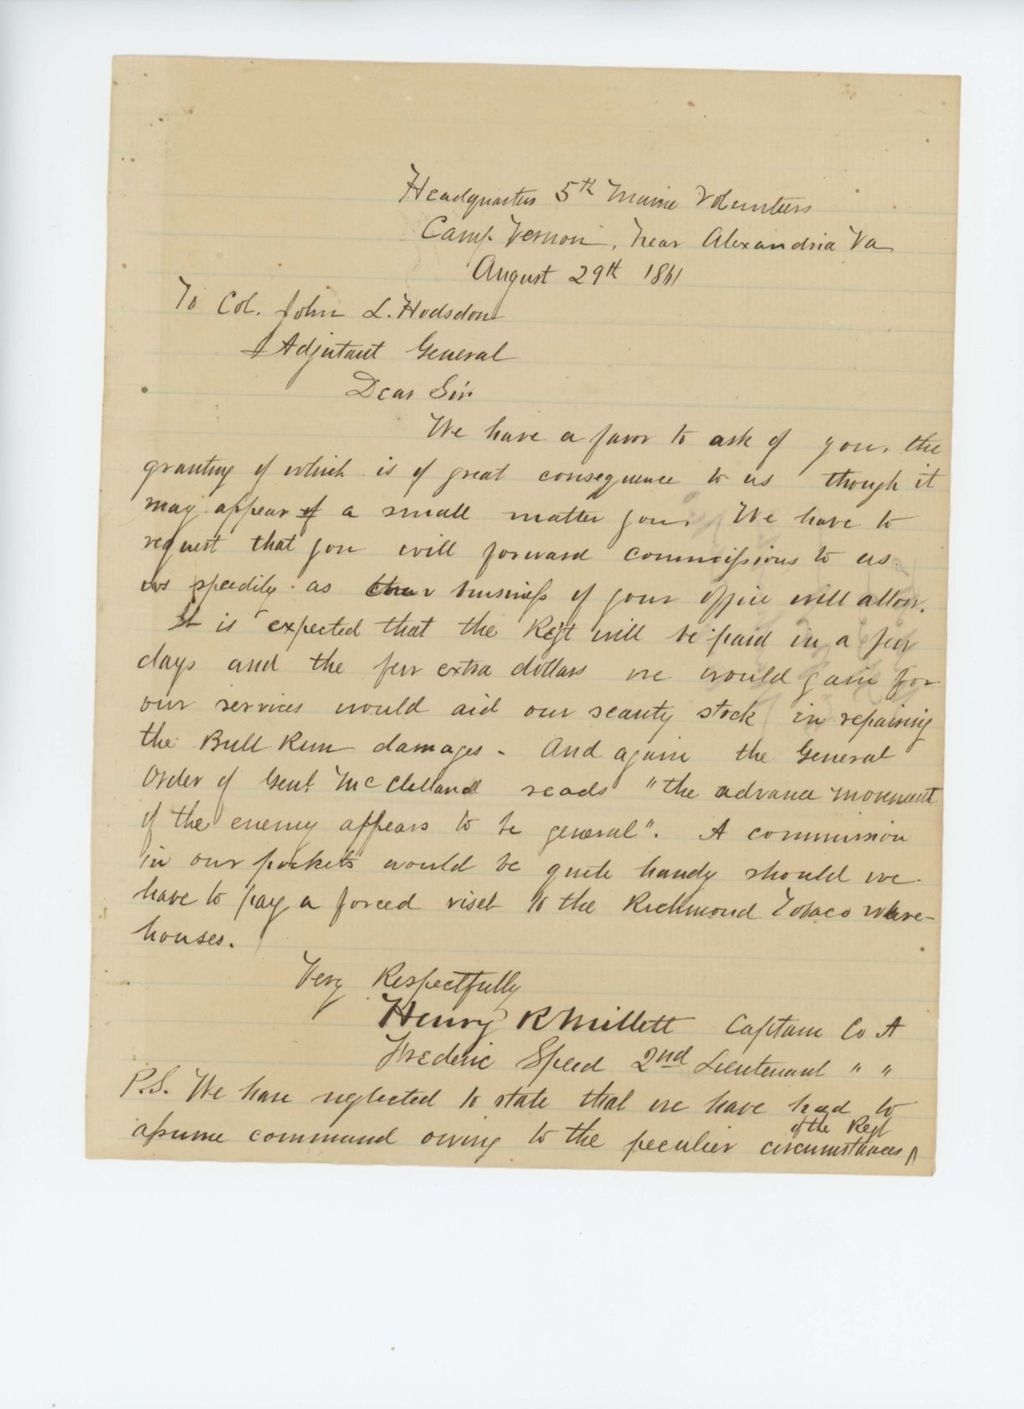 Headquarters 5th Maine Volunteers
Camp Vernon, Near Alexandria Va
August 29th 1861
To Col. John L. Hodsdon
Adjutant General
Dear Sir
We have a favor to ask of you, the
granting of which is of great consequence to us though it
may appear of a small matter you. We have to
request that you will forward commissions to us
as speedily as the business of your office will allow.
It is expected that the Regt will be paid in a few
days and the few extra dollars we would gain for
our services would aid our scanty stock in repairing
the Bull Run damages - And again the General
Order of Genl McClelland reads "the advance movement
of the enemy appears to be general". A commission
in our pockets would be quite handy should we
have to pay a forced visit to the Richmond Tobaco ware-
houses.
Very Respectfully
Henry R Millett Captain Co A
Frederic Speed 2nd Lieutenant " "
P.S. We have neglected to state that we have had to
assume command owing to the peculier circumstances of the Regt